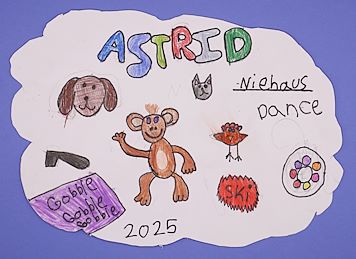 ASTRID
Niehaus
Dance
Ski
Gobble
Gobble
Gobble
2025